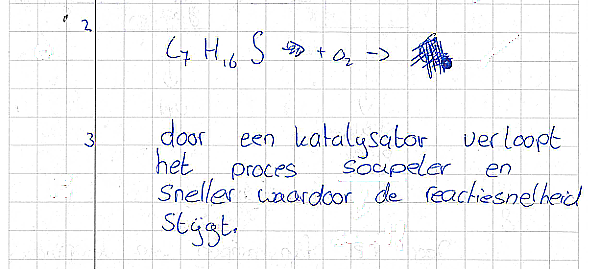 2
C7 H16 S + O2 ->
3 door een katalysator verloopt
het proces soapeler en
sneller waardoor de reactiesnelheid
stijgt.